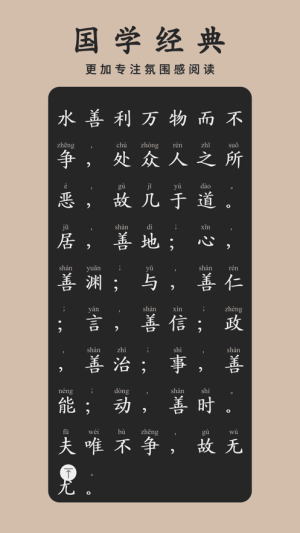 国学经典
更加专注氛围感阅读
水善利万物而不
zhēng , chù zhòng rén zhī suǒ
争，处众人之所
è , gù jī yú dào 。
恶，故几于道。
jū , shàn dì ; xīn ,
居，善地；心，
shàn yuān ; yǔ , shàn rén
善渊；与，善仁
; yán , shàn xìn ; zhèng
；言，善信；政
, shàn zhì ; shì , shàn
，善治；事，善
néng ; dòng , shàn shí 。
能；动，善时。
fū wéi bù zhēng , gù wú
夫唯不争，故无
尤。